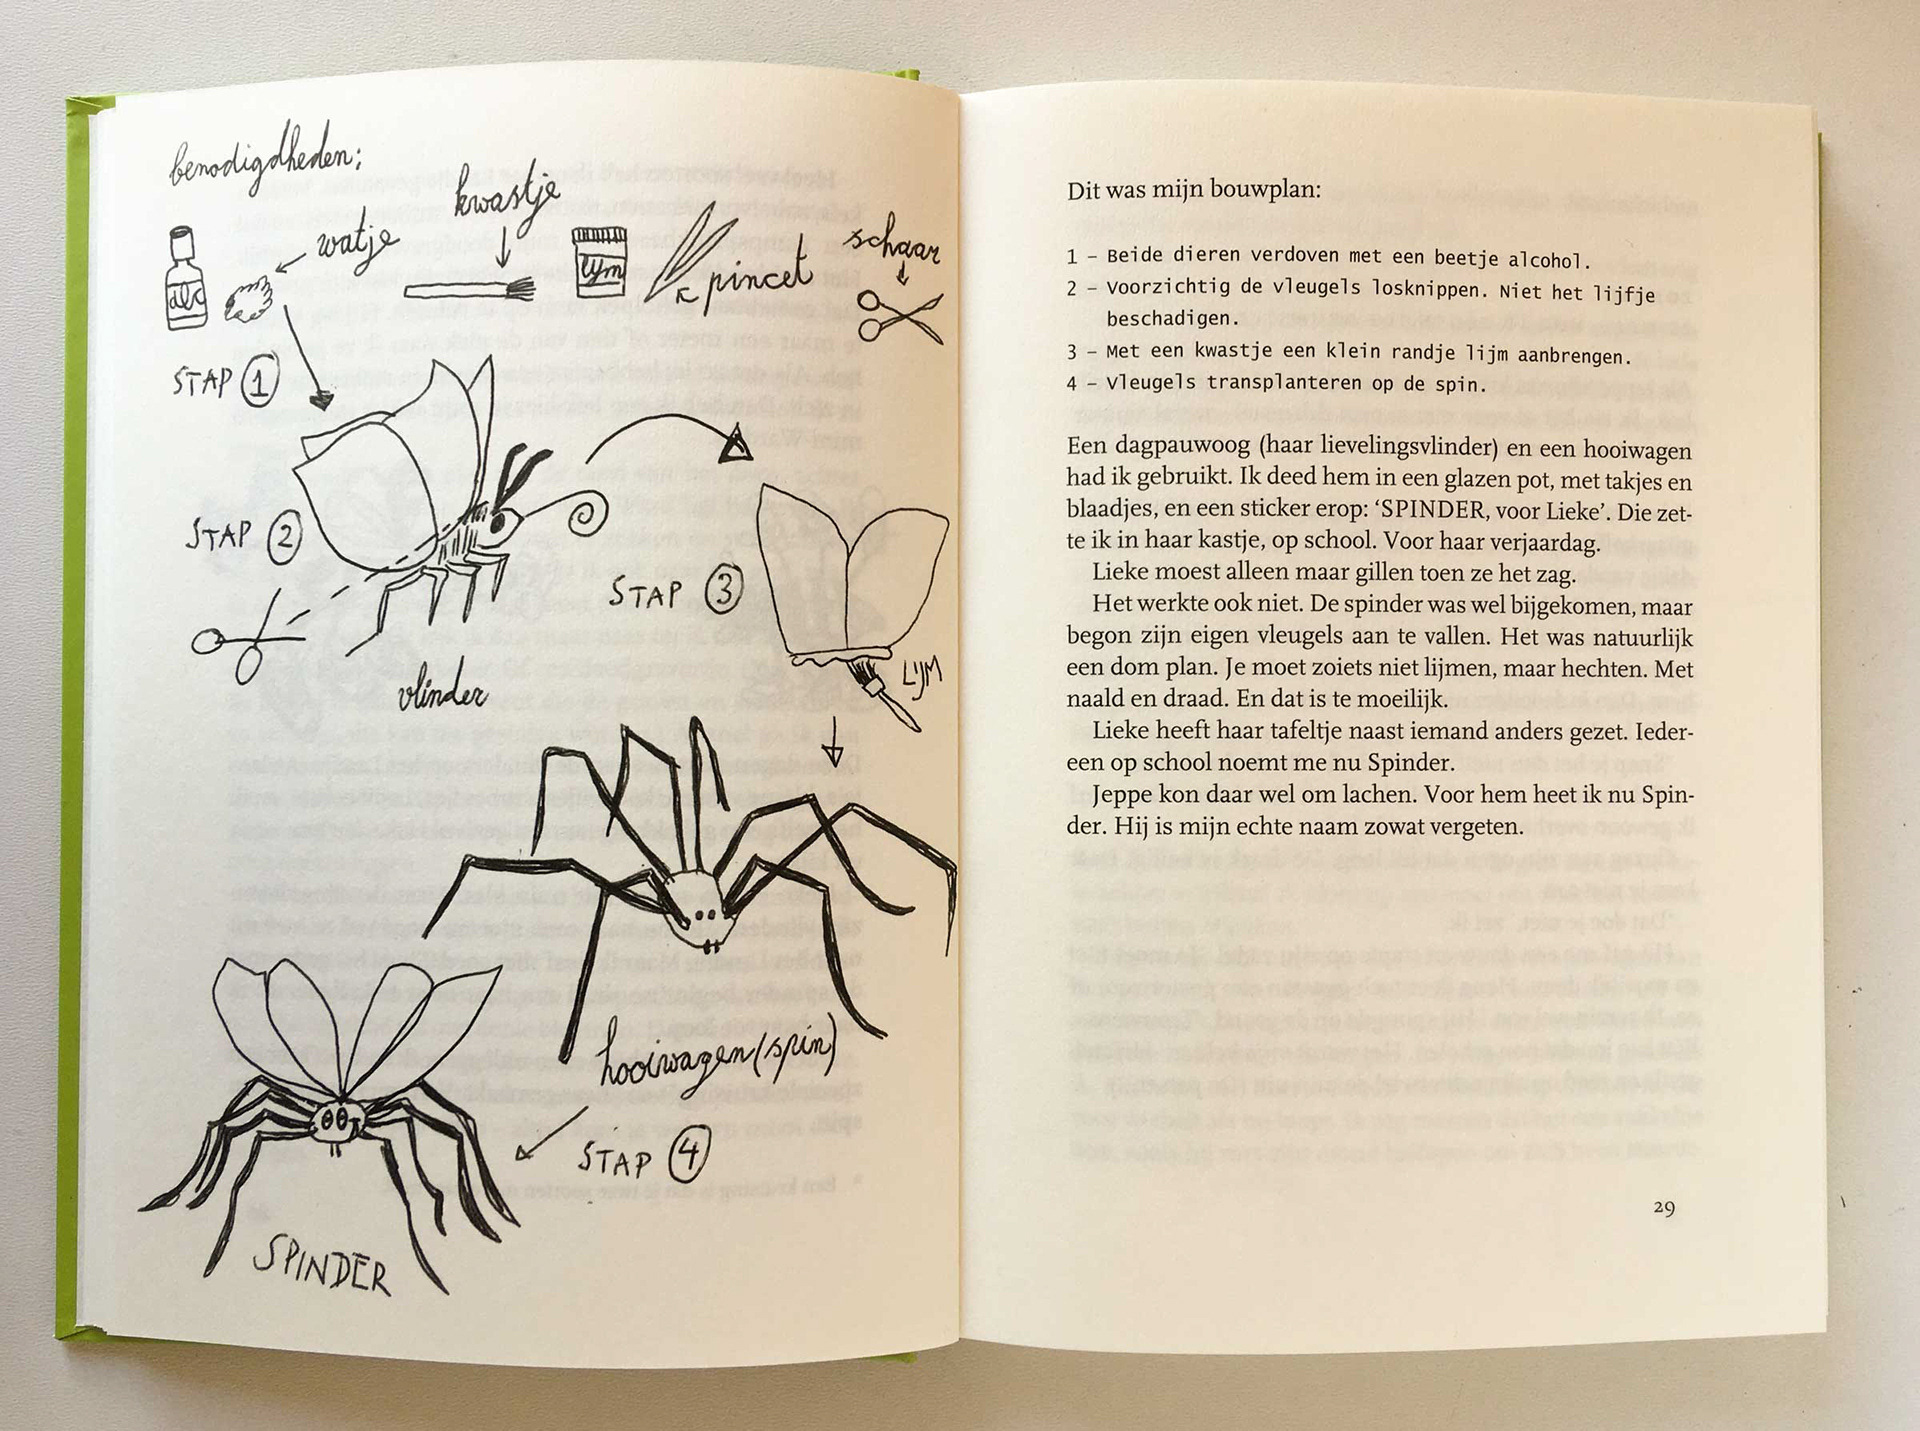 benodigdheden:
watje
kwastje
pincet
schaar
alc
lijm
STAP 1
STAP 2
STAP 3
LIJM
vlinder
hooiwagen (spin)
STAP 4
SPINDER
Dit was mijn bouwplan:
1 – Beide dieren verdoven met een beetje alcohol.
2 – Voorzichtig de vleugels losknippen. Niet het lijfje
beschadigen.
3 – Met een kwastje een klein randje lijm aanbrengen.
4 – Vleugels transplanteren op de spin.
Een dagpauwoog (haar lievelingsvlinder) en een hooiwagen
had ik gebruikt. Ik deed hem in een glazen pot, met takjes en
blaadjes, en een sticker erop: ‘SPINDER, voor Lieke’. Die zet-
te ik in haar kastje, op school. Voor haar verjaardag.
Lieke moest alleen maar gillen toen ze het zag.
Het werkte ook niet. De spinder was wel bijgekomen, maar
begon zijn eigen vleugels aan te vallen. Het was natuurlijk
een dom plan. Je moet zoiets niet lijmen, maar hechten. Met
naald en draad. En dat is te moeilijk.
Lieke heeft haar tafeltje naast iemand anders gezet. Ieder-
een op school noemt me nu Spinder.
Jeppe kon daar wel om lachen. Voor hem heet ik nu Spin-
der. Hij is mijn echte naam zowat vergeten.
29